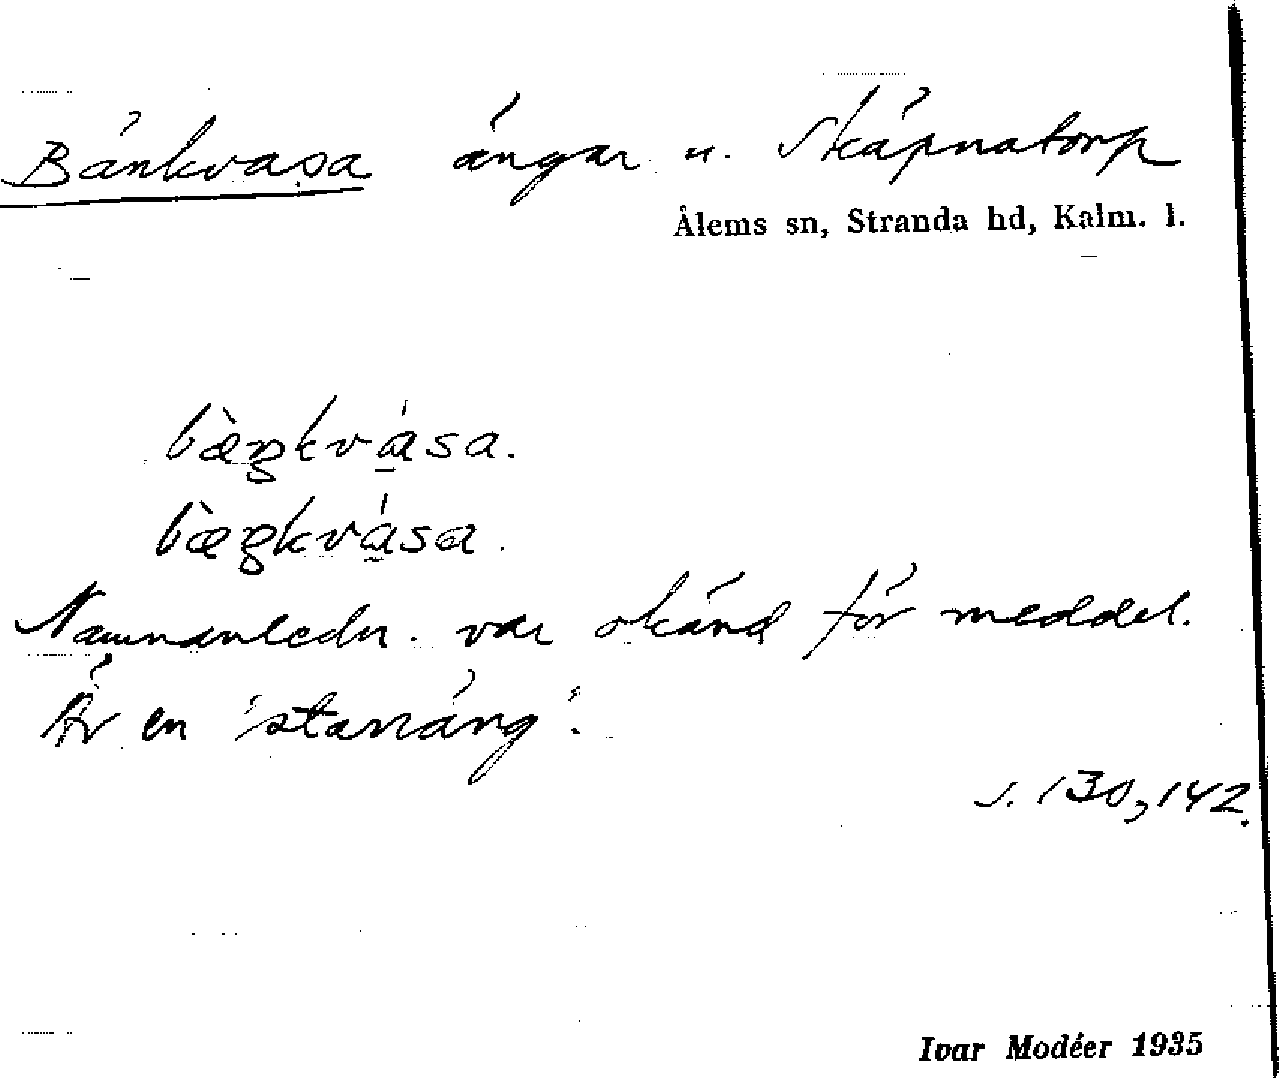 Bänkvasa ängar u. Skäpnatorp
Ålems sn, Stranda hd, Kalm. l.
bæŋkvása.
bæŋkvása.
Namnanledn. var okänd för meddel.
Är en 'starräng'.
s. 130, 142.
Ivar Modéer 1935